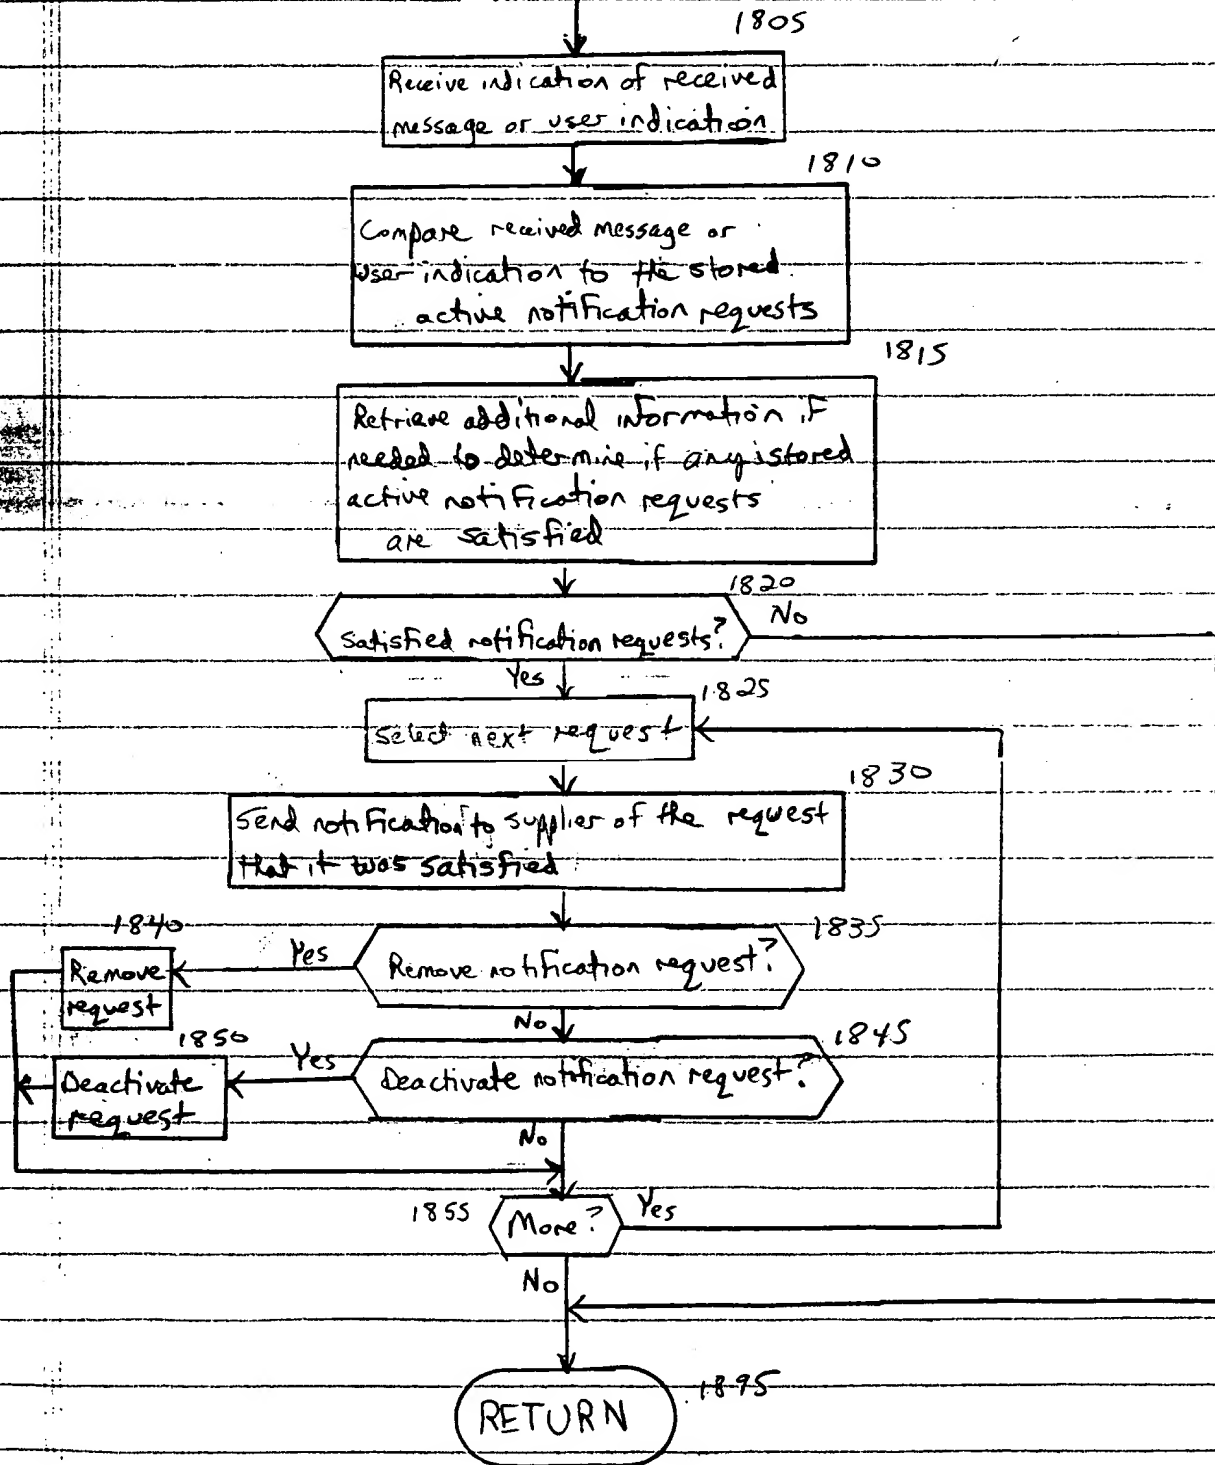 1805
Receive indication of received
message or user indication
1810
Compare received message or
user indication to the stored
active notification requests
1815
Retrieve additional information if
needed to determine if any stored
active notification requests
are satisfied
1820
Satisfied notification requests?
No
Yes
1825
Select next request
1830
Send notification to supplier of the request
that it was satisfied
1835
Remove notification request?
Yes
1840
Remove
request
No
1845
Deactivate notification request?
Yes
1850
Deactivate
request
No
1855
More?
Yes
No
RETURN
1895